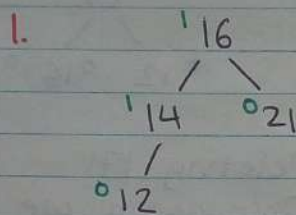 1.
1 16
1 14 0 21
0 12